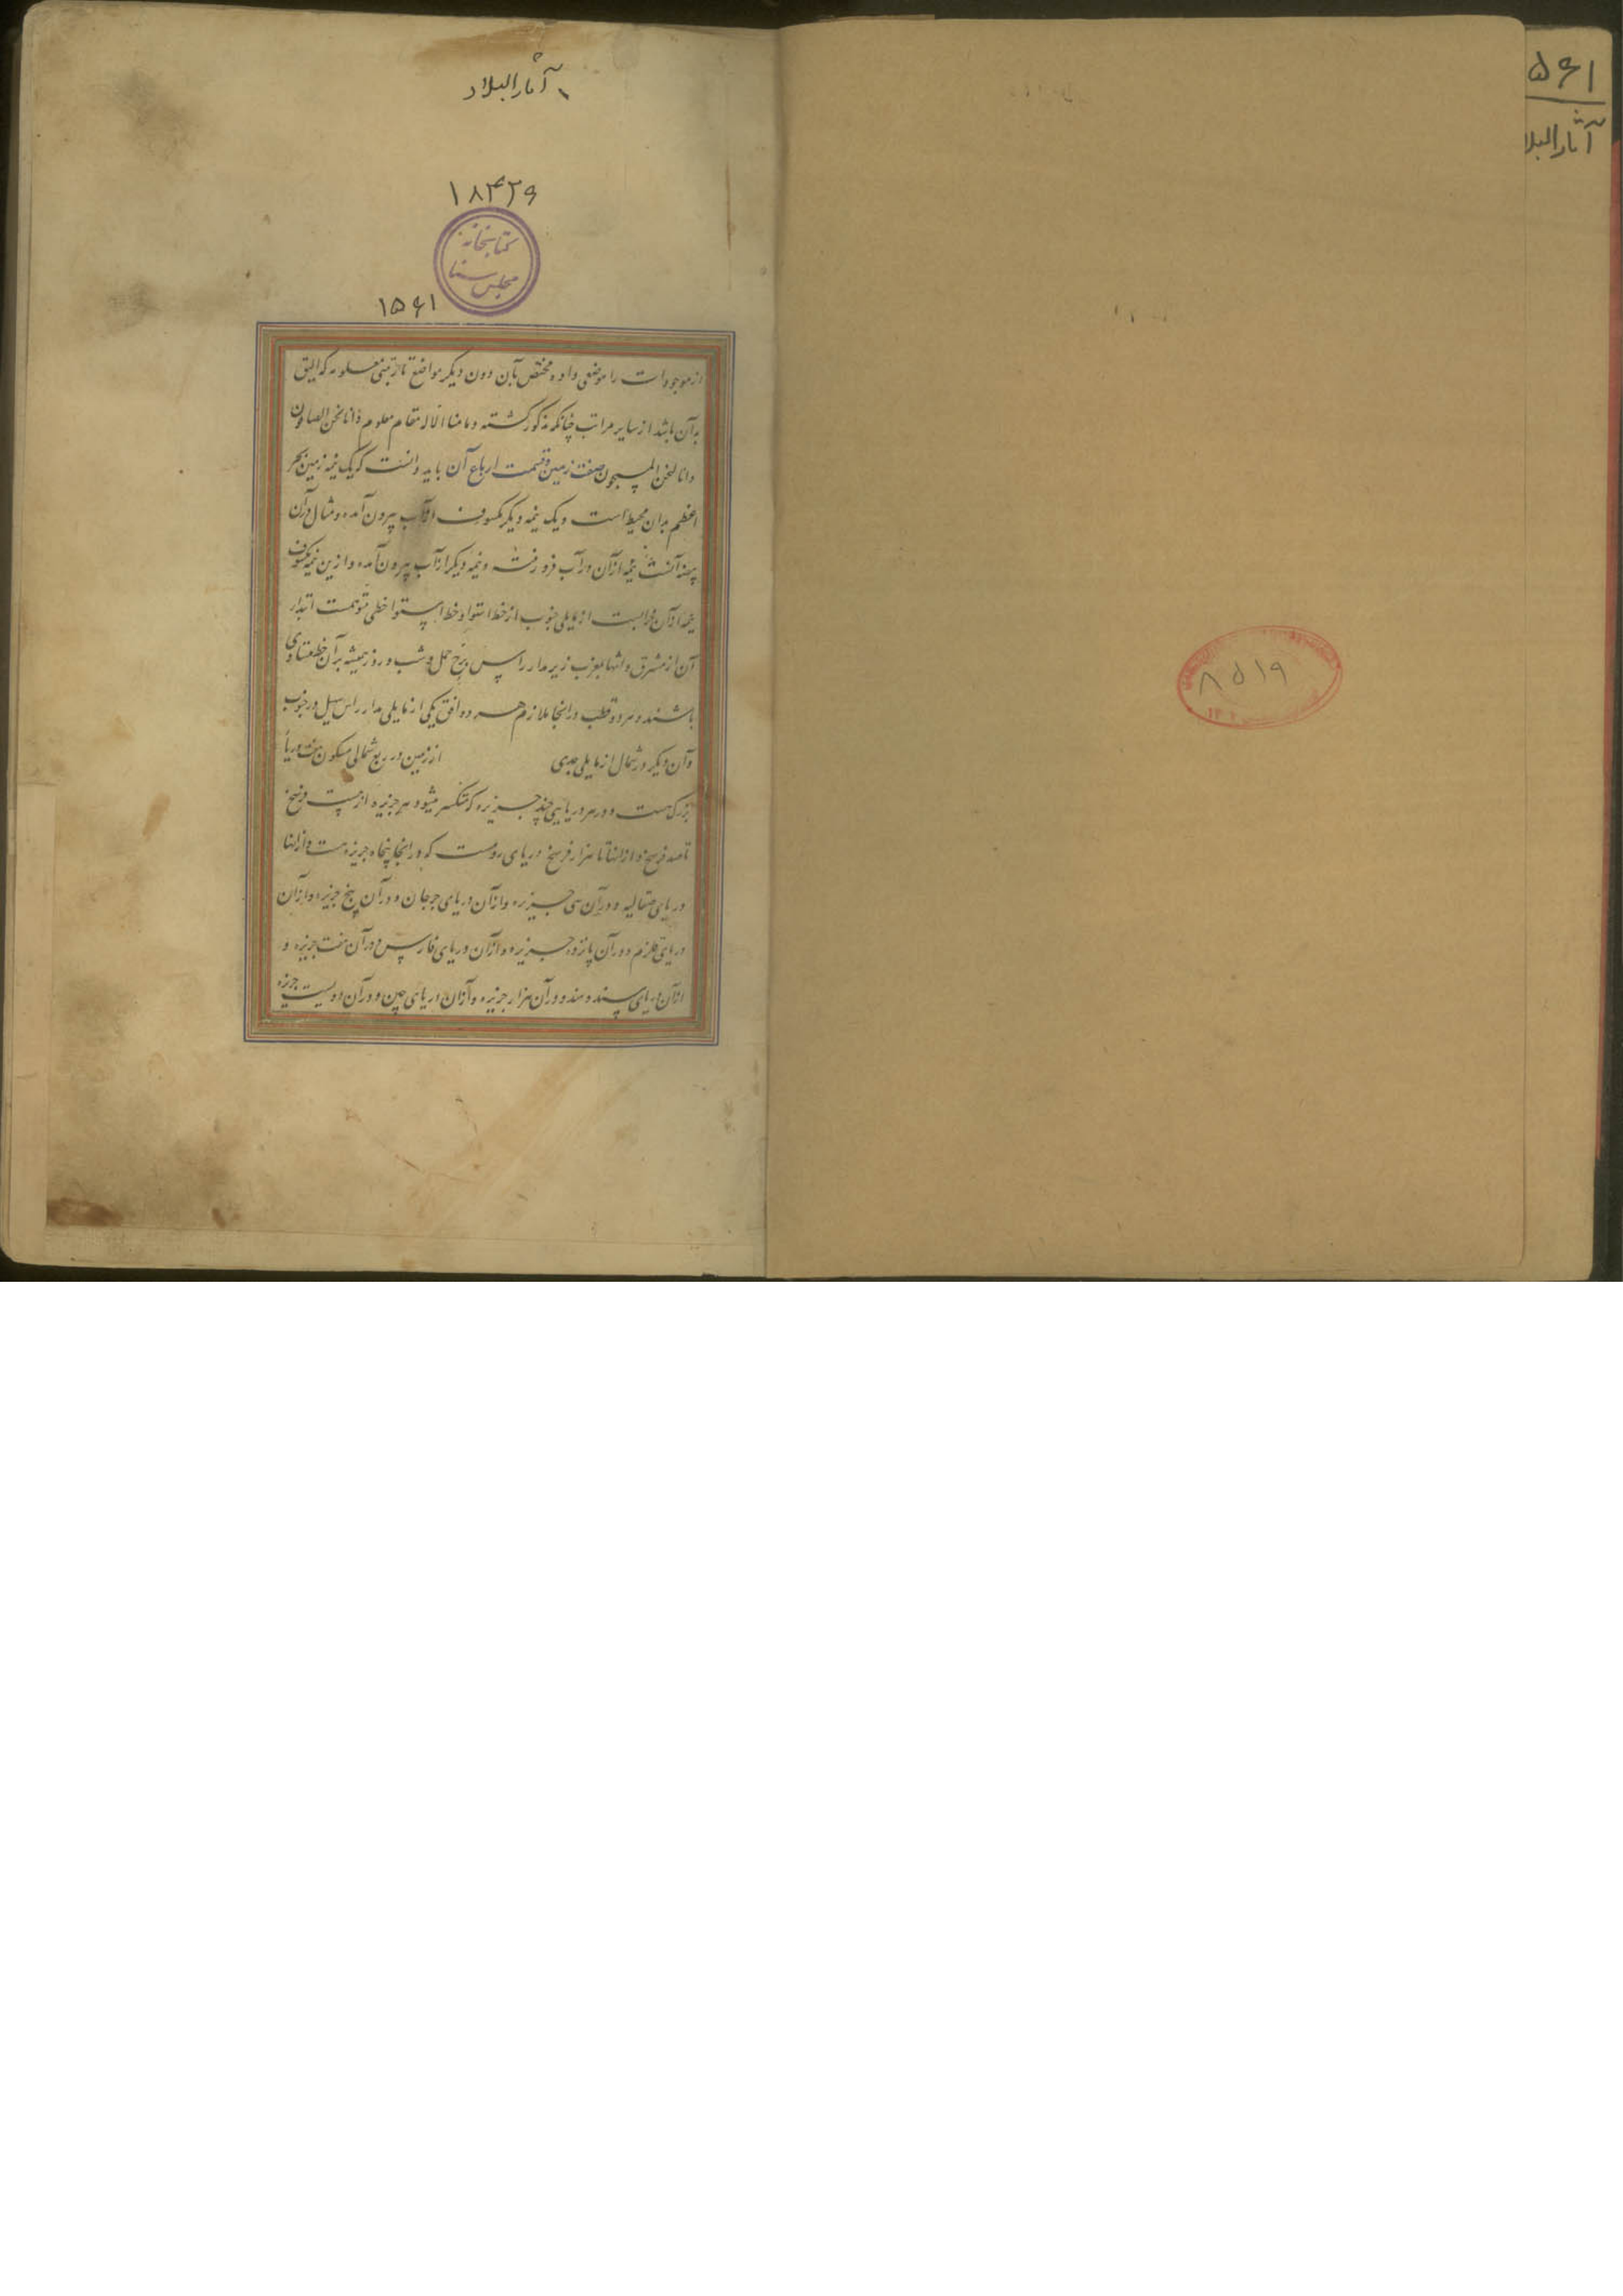 ۱۵۶۱
آثار البلاد
۸۵۱۹
آثار البلاد
۱۸۴۲۹
کتابخانه
مجلس سنا
۱۵۶۱
از موجودات را موضعی داده مختص بآن دون دیکر مواضع تا از تبتی معلومه که الیق
بآن باشد از سایر مراتب چنانکه مذکور کشته و ما منا الا له مقام معلوم و انا لنحن الصافون
و انا لنحن المسبحون صفت زمین و قسمت ارباع آن باید دانست که یک نیمه زمین بحر
اعظم بدان محیط است و یک نیمه دیکر مکسوف از آب بیرون آمده و مثال آن
بیضه آنست نیمه از آن در آب فرو رفته و نیمه دیکر از آب بیرون آمده و ازین نیمه مکسوف
نیمه از آن خرابست از مایلی جنوب از خط استوا و خط استوا خطی متوهمست ابتدا
آن از مشرق و انتها بمغرب زیر مدار راس برج حمل و شب و روز همیشه بر آن خط متساوی
باشند و هر دو قطب در انجا ملازم هر دو افق یکی از مایلی مدار راس سهیل در جنوب
و آن دیکر در شمال از مایلی جدی از زمین در ربع شمالی مسکون هفت دریا
بزرک هست و در هر دریایی چند جزیره که متکسر میشود هر جزیره از بیست فرسخ
تا صد فرسخ و از انها تا هزار فرسخ دریای رومست که در انجا پنجاه جزیره هست و از انها
دریای صقالیه و در آن سی جزیره و از آن دریای جرجان و در آن پنج جزیره و از آن
دریای قلزم و در آن پانزده جزیره و از آن دریای فارس و در آن هفت جزیره و
از آن دریای سند و هند و در آن هزار جزیره و از آن دریای چین و در آن دویست جزیره